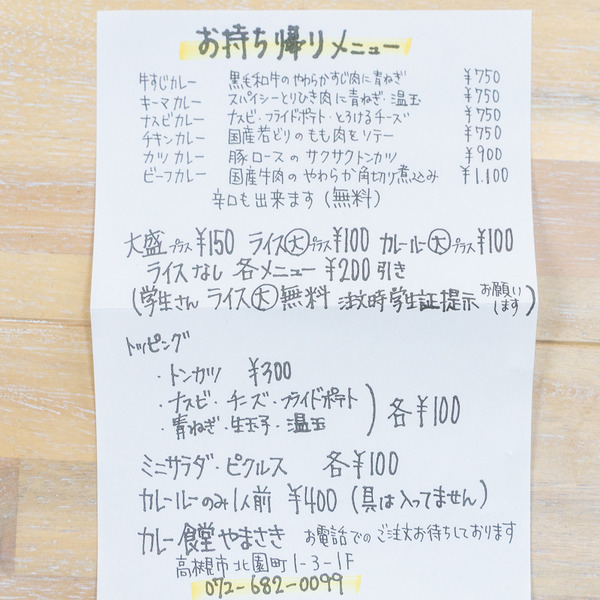 お持ち帰りメニュー
牛すじカレー 黒毛和牛のやわらかすじ肉に青ねぎ ¥750
キーマカレー スパイシーとりひき肉に青ねぎ・温玉 ¥750
ナスビカレー ナスビ・フライドポテト・とろけるチーズ ¥750
チキンカレー 国産若どりのもも肉をソテー ¥750
カツカレー 豚ロースのサクサクトンカツ ¥900
ビーフカレー 国産牛肉のやわらか角切り煮込み ¥1.100
辛口も出来ます(無料)
大盛プラス¥150 ライス大プラス¥100 カレールー大プラス¥100
ライスなし 各メニュー ¥200引き
(学生さん ライス大無料 注文時学生証提示お願いします)
トッピング
・トンカツ ¥300
・ナスビ・チーズ・フライドポテト
・青ねぎ・生玉子・温玉 ) 各¥100
ミニサラダ・ピクルス 各¥100
カレールーのみ1人前 ¥400 (具は入ってません)
カレー食堂やまさき お電話でのご注文お待ちしております
高槻市北園町1-3-1F
072-682-0099